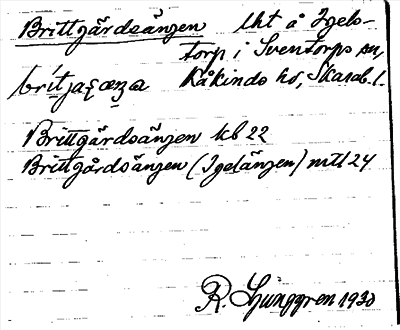 Brittgärdsängen lht å Igels-
torp i Sventorps sn,
Kåkinds hd, Skarab. l.
Brittgärdsängen kb 22
Brittgårdsängen (Igelängen) mtl 24
R. Ljunggren 1930